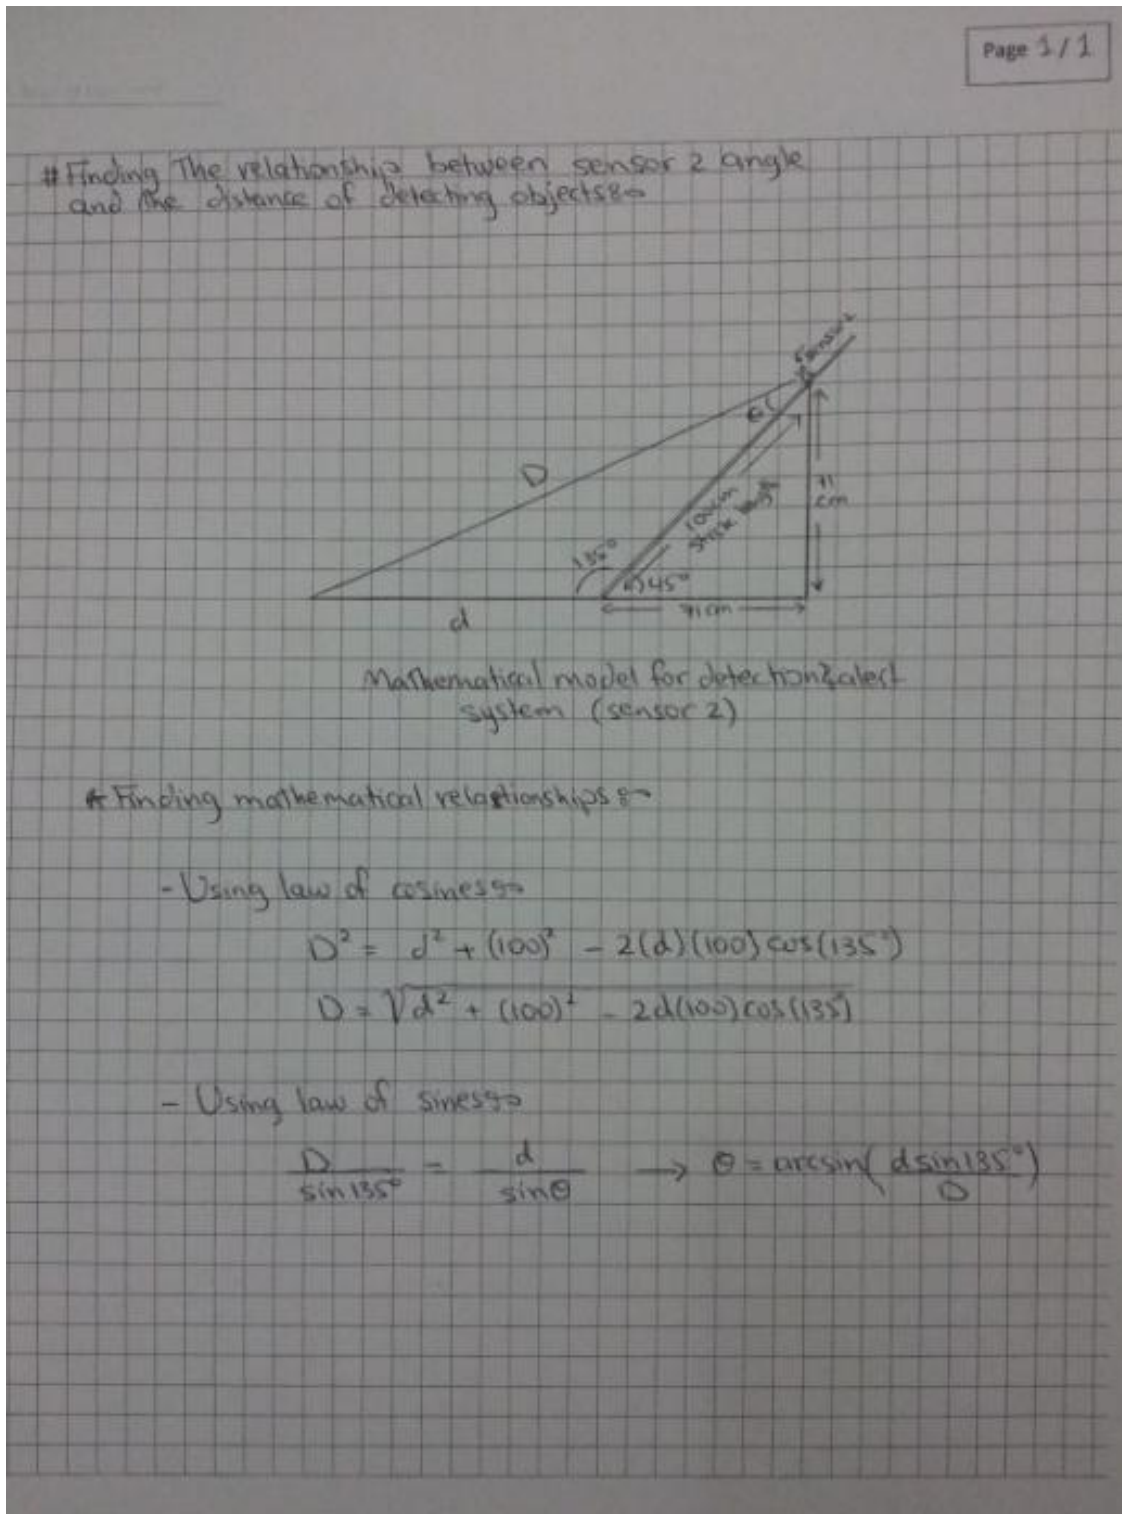 Page 1 / 1
# Finding The relationship between sensor 2 angle
and the distance of detecting objects:-
Sensor 2
θ
D
100cm
stick length
71
cm
135°
45°
71cm
d
Mathematical model for detection & alert
system (sensor 2)
* Finding mathematical relationships:-
- Using law of cosines:-
D² = d² + (100)² - 2(d)(100) cos(135°)
D = √d² + (100)² - 2d(100)cos(135)
- Using law of sines:-
D/sin135° = d/sinθ → θ = arcsin(dsin135°/D)